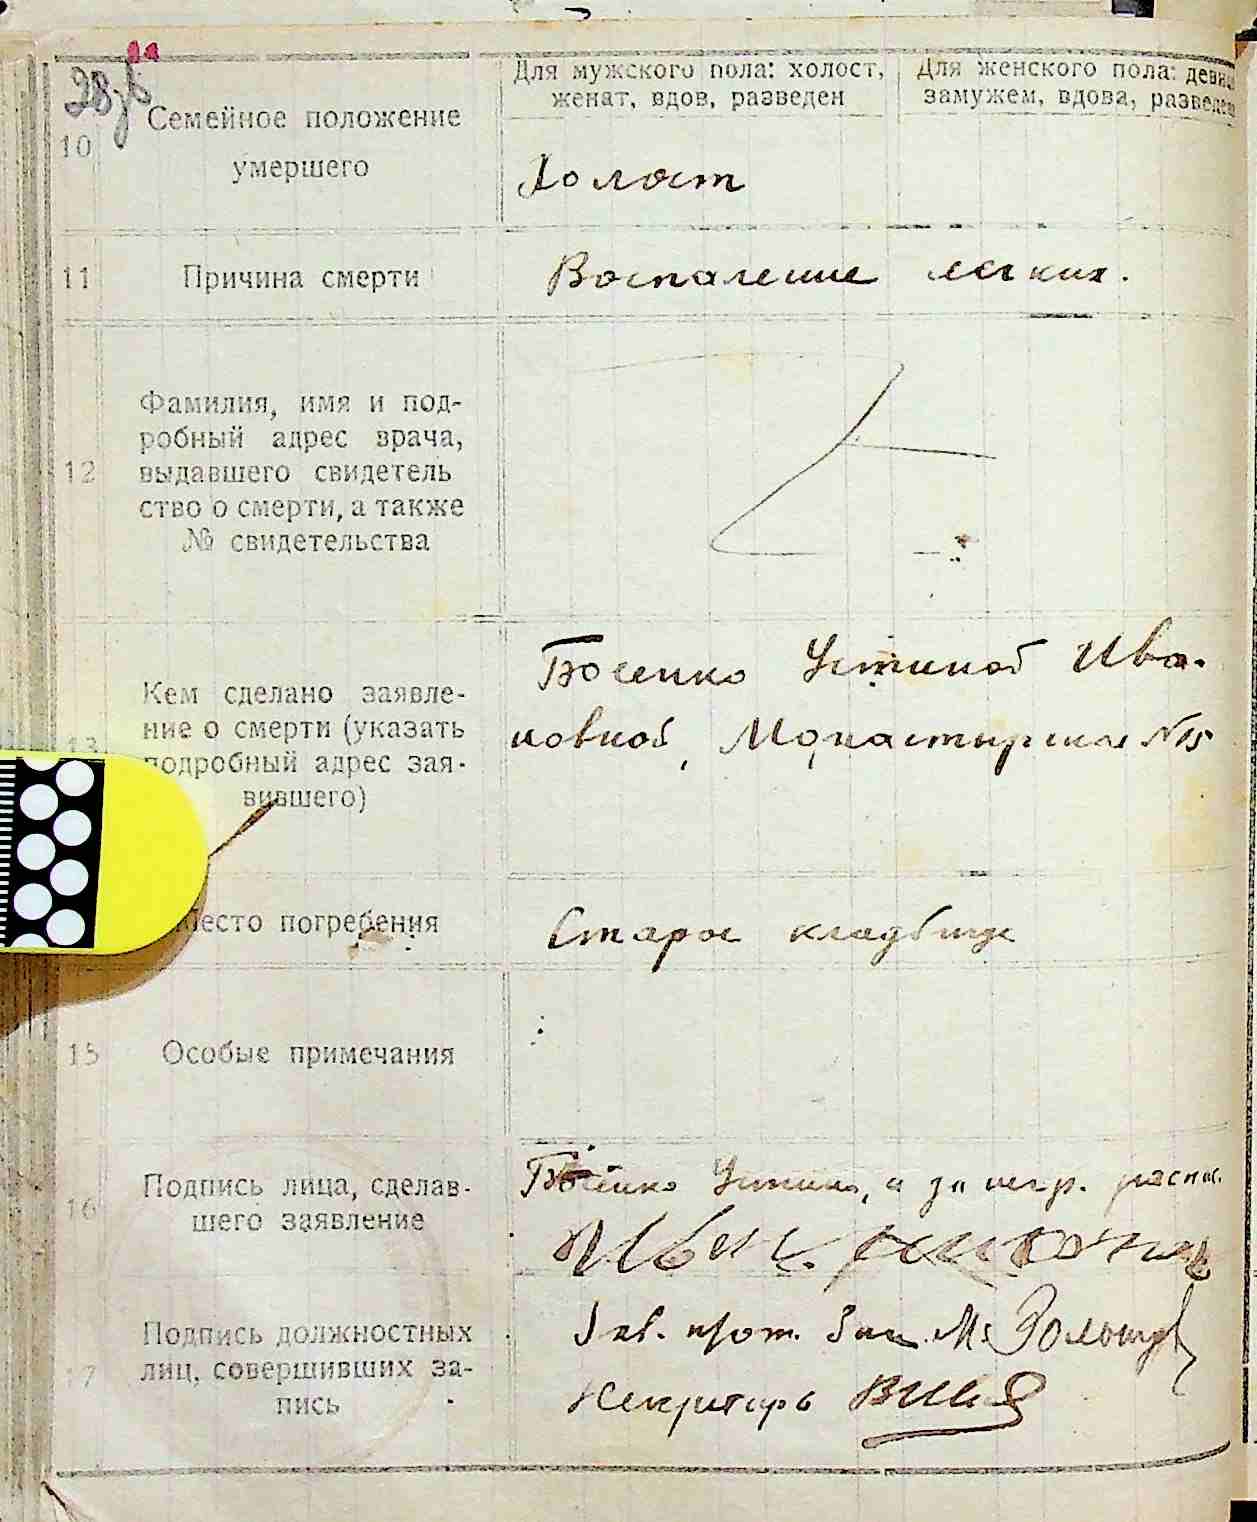 28
Для мужского пола: холост,
женат, вдов, разведен
Для женского пола:
замужем, вдова,
10
Семейное положение
умершего
Холост
11
Причина смерти
Воспаление легких.
12
Фамилия, имя и под-
робный адрес врача,
выдавшего свидетель
ство о смерти, а также
№ свидетельства
13
Кем сделано заявле-
ние о смерти (указать
подробный адрес зая-
вившего)
Босенко Устиной Ива-
новной, Монастырская №15
Место погребения
Старое кладбище
15
Особые примечания
16
Подпись лица, сделав-
шего заявление
Босенко Устина, а за негр. распис.
17
Подпись должностных
лиц, совершивших за-
пись
Зав.
Секретарь